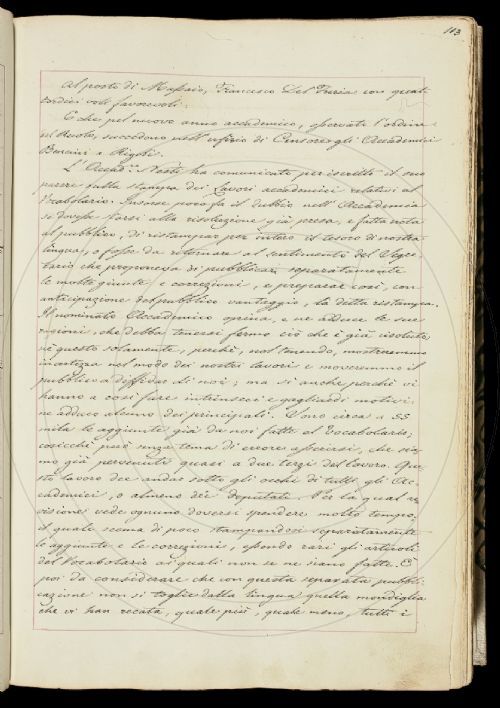 113
Al posto di Massaio, Francesco Del Furia con quat-
tordici voti favorevoli.
E che pel nuovo anno accademico, osservato l'ordine
del Ruolo, succedono nell'uffizio di Censore gli Accademici
Bencini e Righi.
L'Accad.co Nesti ha comunicato per iscritto il suo
parere sulla stampa dei Lavori accademici relativi al
Vocabolario. Insorse poco fa il dubbio nell'Accademia
se dovesse starsi alla risoluzione già presa, e fatta nota
al pubblico, di ristampar per intero il tesoro di nostra
lingua; o fosse da ritornare al sentimento del Segre-
tario che proponeva di pubblicar separatamente
le molte giunte e correzioni, e preparare così, con
anticipazione del pubblico vantaggio, la detta ristampa.
Il nominato Accademico opina, e ne adduce le sue
ragioni, che debba tenersi fermo ciò che è già risoluto
nè questo solamente, perchè, non tenendo, mostreremmo
incertezza nel modo dei nostri lavori e moveremmo il
pubblico a diffidar di noi; ma sì anche perchè vi
hanno a così fare intrinseci e gagliardi motivi:
ne adduco alcuno dei principali. Sono circa a 55
mila le aggiunte già da noi fatte al Vocabolario;
cosicchè può senza tema di errore asserirsi, che sia-
mo già pervenuti quasi a due terzi del lavoro. Que-
sto lavoro dee andar sotto gli occhi di tutti gli Ac-
cademici, o almeno dei deputati. Per la qual re-
visione vede ognuno doversi spendere molto tempo;
il quale scema di poco stampandosi separatamente
le aggiunte e le correzioni, essendo rari gli articoli
del Vocabolario ai quali non se ne siano fatte. È
poi da considerare che con questa separata pubbli-
cazione non si toglie dalla lingua quella mondiglia
che vi han recata, quale più, quale meno, tutti i